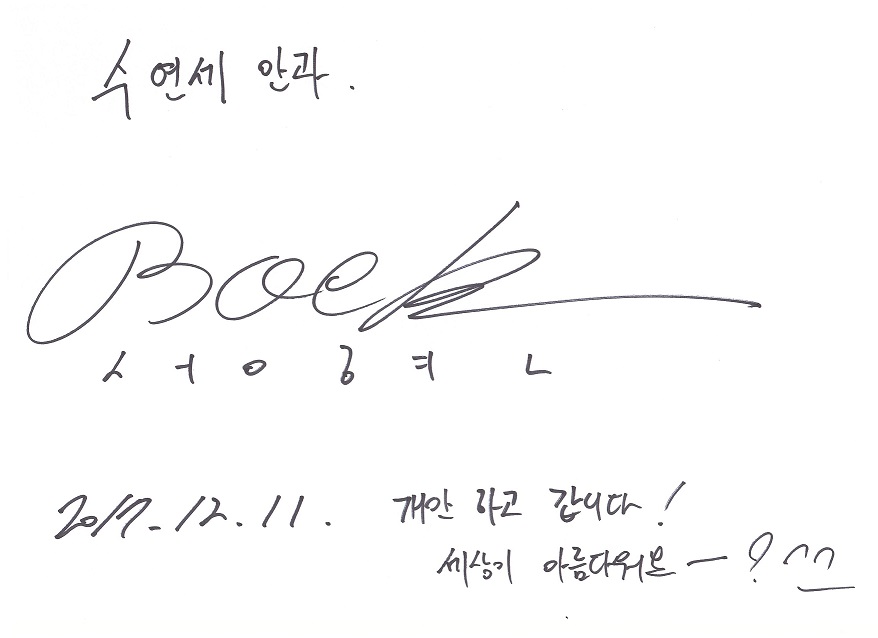 수연세 안과.
Baek
ㅅ ㅓ ㅇ ㅎ ㅕ ㄴ
2017.12.11. 개안 하고 갑니다!
세상이 아름다워보 ㅡ ? ^^